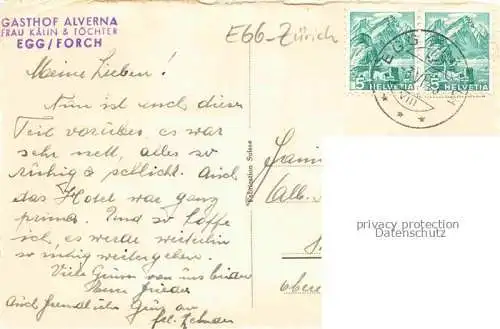 GASTHOF ALVERNA
FRAU KÄLIN & TÖCHTER
EGG/FORCH
EGG-Zürich
5 HELVETIA
5 HELVETIA
EGG
VIII
Meine Lieben!
Nun ist auch dieser
Teil vorüber, es war
sehr nett, alles so
ruhig & schlicht. Auch
das Hotel war ganz
prima. Und so hoffe
ich, es werde weiterhin
so ruhig weitergehen.
Viele Grüsse von uns beiden
Auch freundliche Grüsse an
Fabrication Suisse
Fami
Alb.
oben
privacy protection
Datenschutz